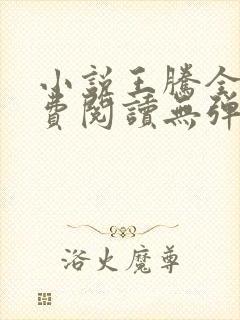 小說王騰全
費閱讀無彈
浴火魔尊